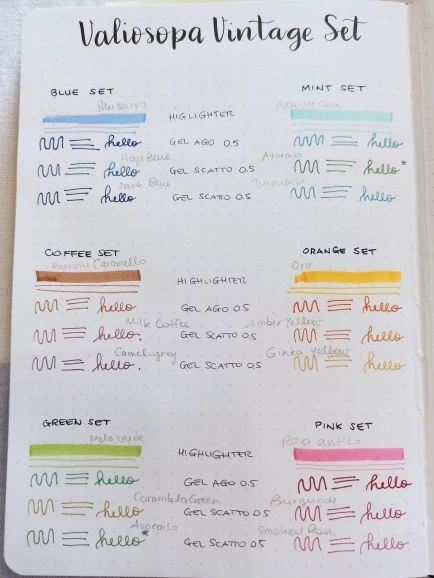 Valiosopa Vintage Set
BLUE SET
MINT SET
HIGLIGHTER
hello GEL AGO 0.5 hello
Haze Blue Avocado
hello GEL SCATTO 0.5 hello*
Dark Blue Turquoise
hello GEL SCATTO 0.5 hello
COFFEE SET
ORANGE SET
Marrone Caramello Oro
HIGHLIGHTER
hello GEL AGO 0.5 hello
Milk Coffee Amber Yellow
hello. GEL SCATTO 0.5 hello
Camel grey Ginko yellow
hello. GEL SCATTO 0.5 hello
GREEN SET
PINK SET
Mela verde Rosa antico
HIGHLIGHTER
hello GEL AGO 0.5 hello
Carambola Green Burgundy
hello GEL SCATTO 0.5 hello
Avocado Smoked Rose
hello* GEL SCATTO 0.5 hello